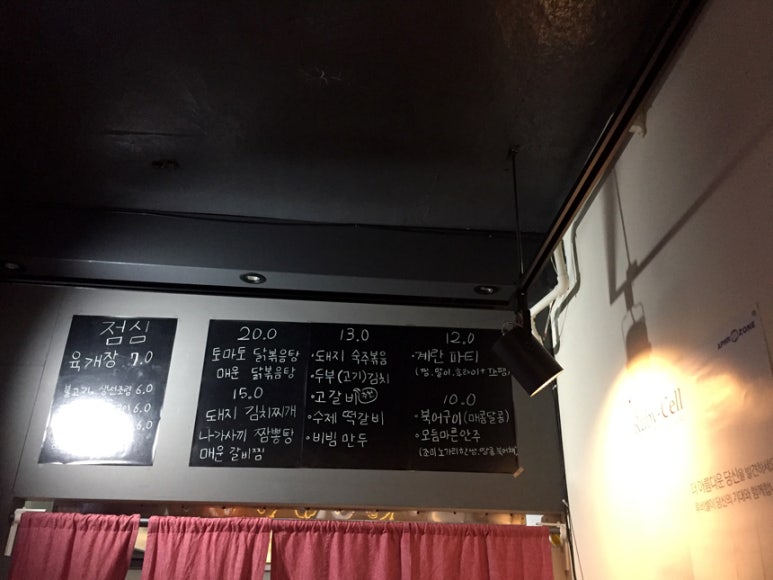 점심
육개장 7.0
불고기, 생선조림 6.0
6.0
6.0
20.0
토마토 닭볶음탕
매운 닭볶음탕
15.0
돼지 김치찌개
나가사끼 짬뽕탕
매운 갈비찜
13.0
·돼지 숙주볶음
·두부(고기)김치
·고갈비
·수제 떡갈비
·비빔만두
12.0
·계란 파티
10.0
·북어구이(매콤달콤)
·모듬마른안주
ZONE
-Cell
더 아름다운 당신을 발견하세
당신의 기대와 함께